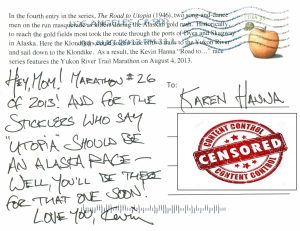 In the fourth entry in the series, The Road to Utopia (1946), two song-and-dance
men on the run masquerade as killers during the Alaskan gold rush. Historically,
to reach the gold fields most took the route through the ports of Dyea and Skagway
in Alaska. Here the Klondikers
and sail down to the Klondike. As a result, the Kevin Hanna "Road to…" race
series features the Yukon River Trail Marathon on August 4, 2013.
HEY, MOM! MARATHON #26
OF 2013! AND FOR THE
STICKLERS WHO SAY
"UTOPIA" SHOULD BE
AN ALASKA RACE—
WELL, YOU'LL BE THERE
FOR THAT ONE SOON.
LOVE YOU, Kevin
To:
KAREN HANNA
CONTENT CONTROL
CENSORED
CONTENT CONTROL